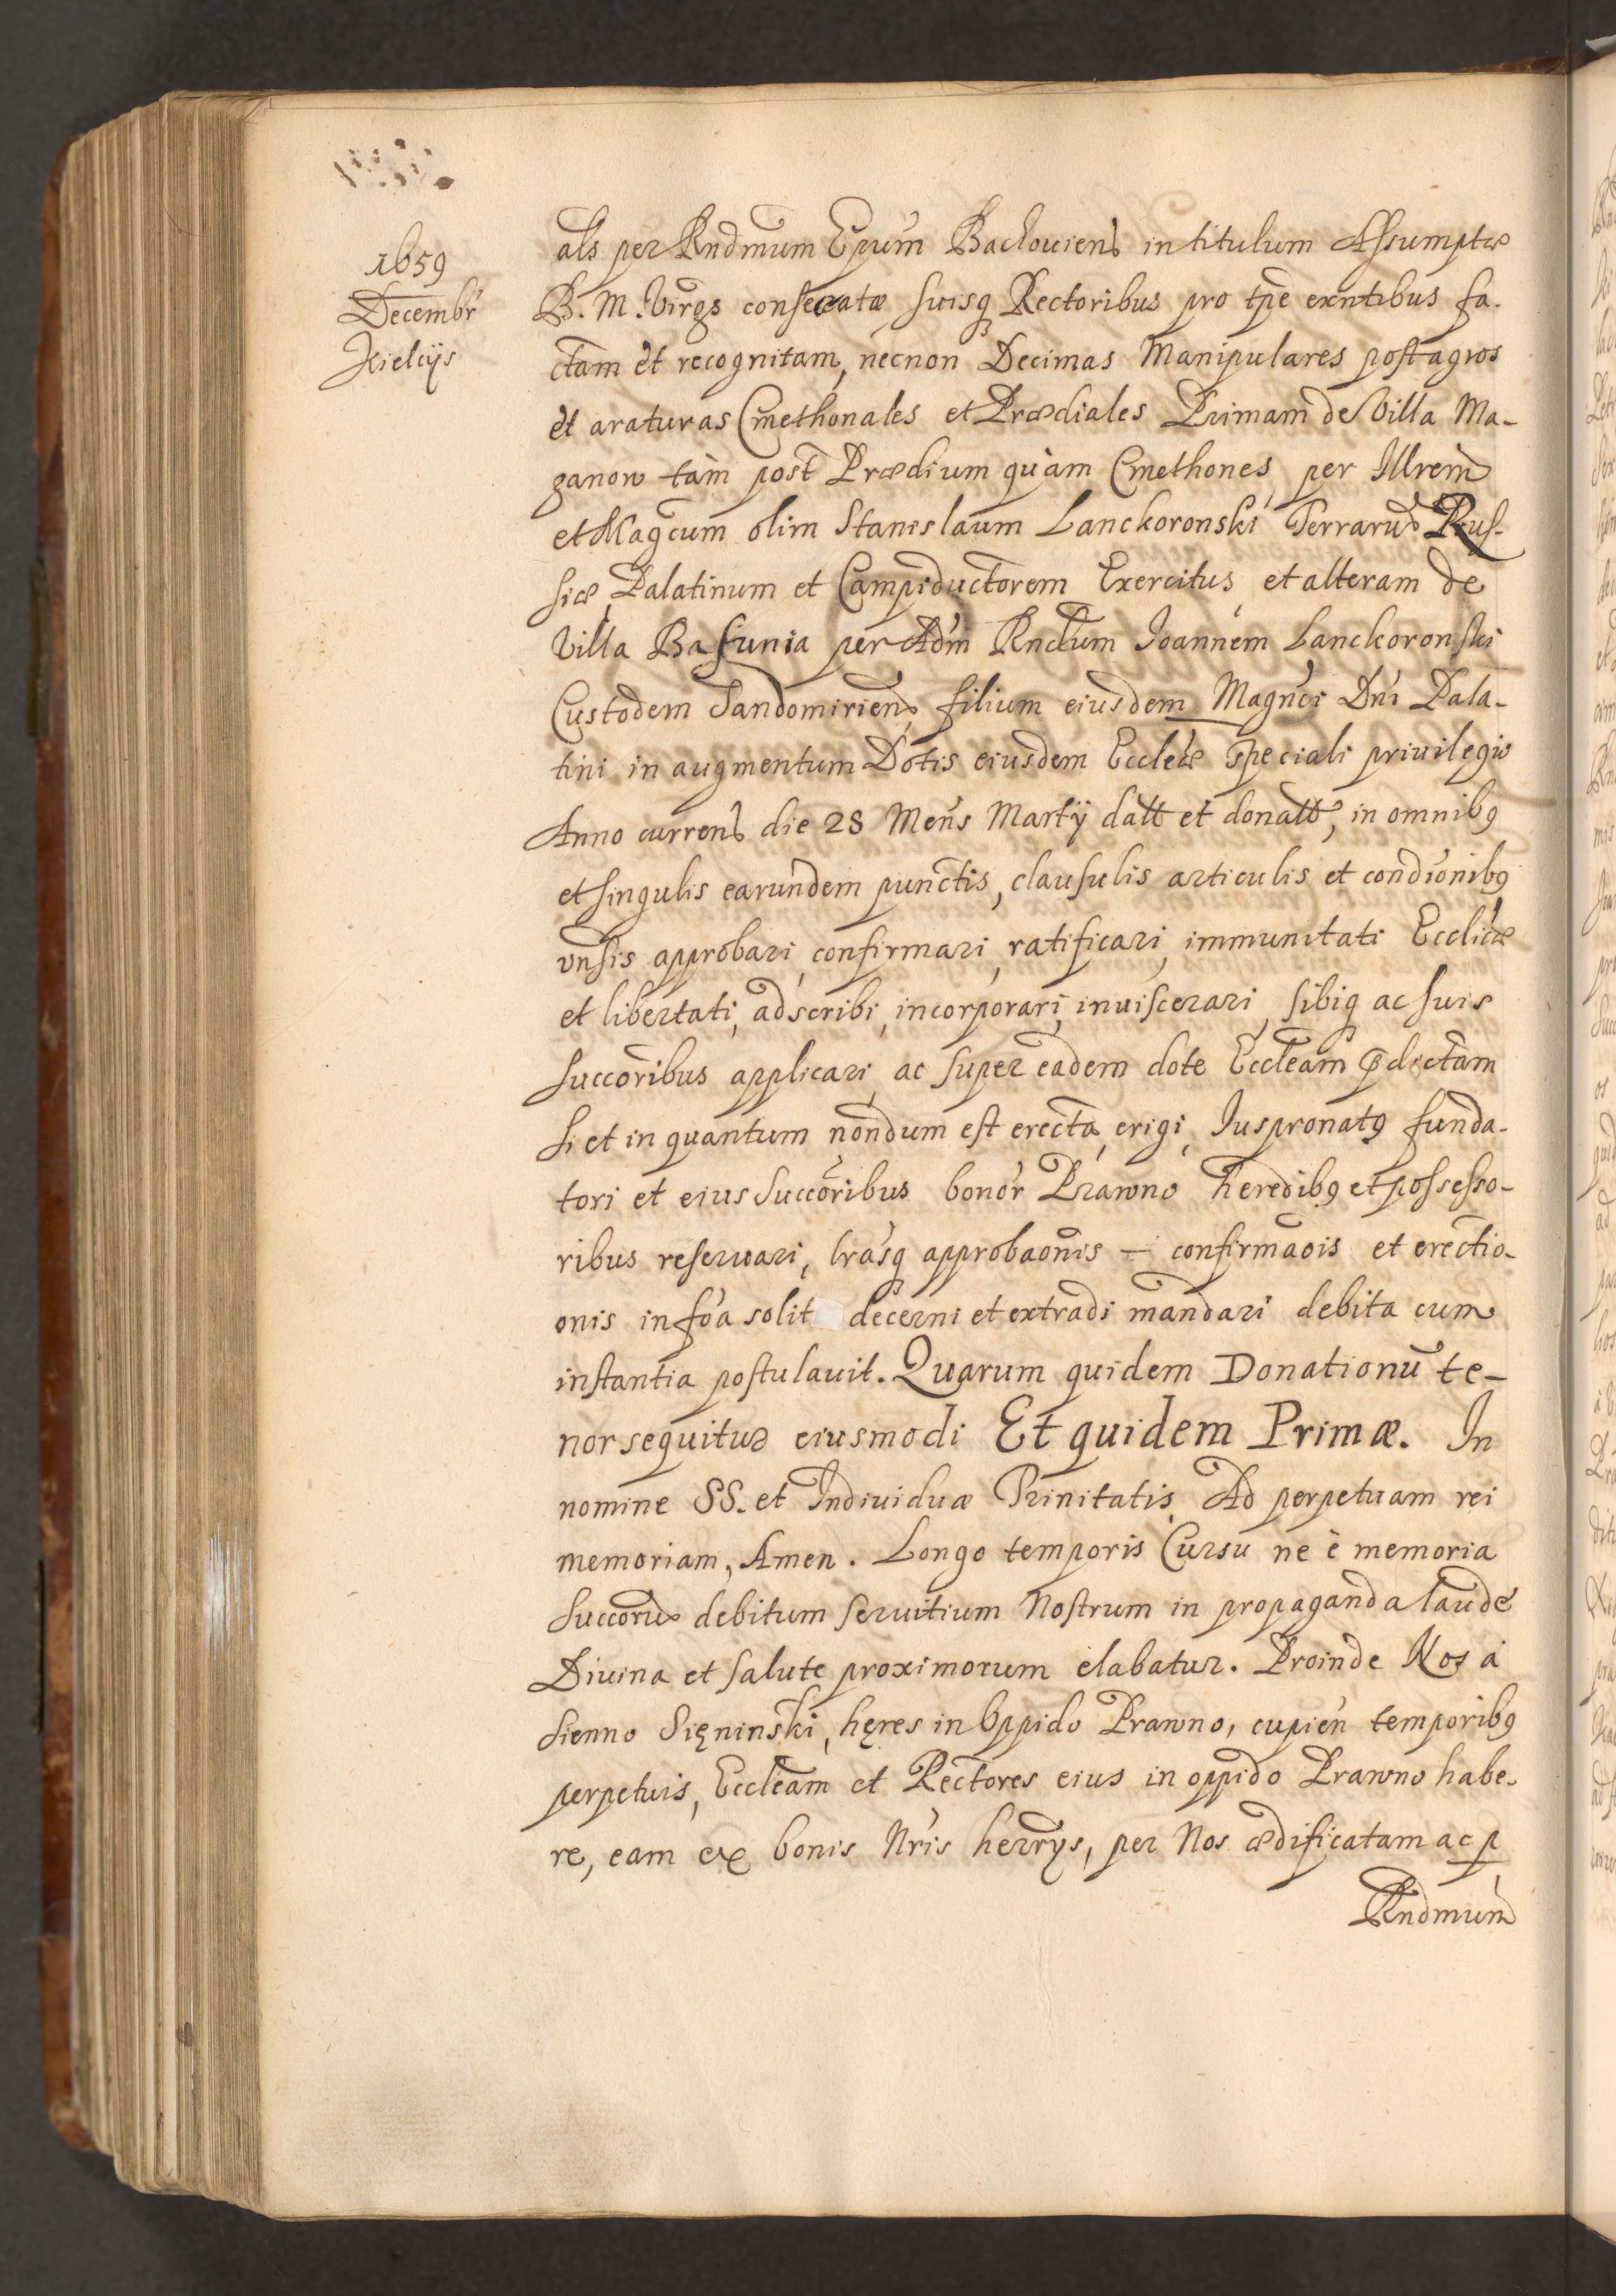 1659
Decembr
Kielcijs
als per Rndmum Epum Bachouiens in titulum Assumptæ
B. M. Virgs consecratæ suisq Rectoribus pro tpe exntibus fa-
ctam et recognitam, necnon Decimas Manipulares post agros
et araturas Cmethonales et Prædiales Primam de Villa Ma-
ganow tàm post Prædium quàm Cmethones per Illrem
et Magcum olim Stanislaum Lanckoronski Terraru Rus-
siæ Palatinum et Campiductorem Exercitus et alteram de
Villa Basunia per Adm Rndum Joannem Lanckoronski
Custodem Sandomiriens, filium eiusdem Magnci Dni Pala-
tini in augmentum Dotis eiusdem Ecclæ speciali priuilegio
Anno currens die 28 Mens Martij datt et donatt, in omnibq
et singulis earundem punctis, clausulis articulis et condionibq
vnsis approbari, confirmari, ratificari, immunitati Eccliæ
et libertati, adscribi, incorporari, inuiscerari, sibiq ac suis
succoribus applicari ac super eadem dote Eccleam pdictam
si et in quantum nondum est erecta, erigi, Juspronatq funda-
tori et eius Succoribus bonor Prawno heredibq et possesso-
ribus reseruari, lrasq approbaonis – confirmaois et erectio-
onis in foa solit decerni et extradi mandari debita cum
instantia postulauit. Quarum quidem Donationu te-
nor sequitur eiusmodi Et quidem Primæ. In
nomine SS. et Indiuiduæ Trinitatis Ad perpetuam rei
memoriam, Amen. Longo temporis Cursu ne è memoria
Succoru debitum seruitium Nostrum in propaganda laude
Diuina et salute proximorum elabatur. Proinde Nos à
Sienno Sięninski, hęres in Oppido Prawno, cupien temporibq
perpetuis, Eccleam et Rectores eius in oppido Prawno habe-
re, eam ex bonis Nris herrys, per Nos ædificatam ac p
Rndmum